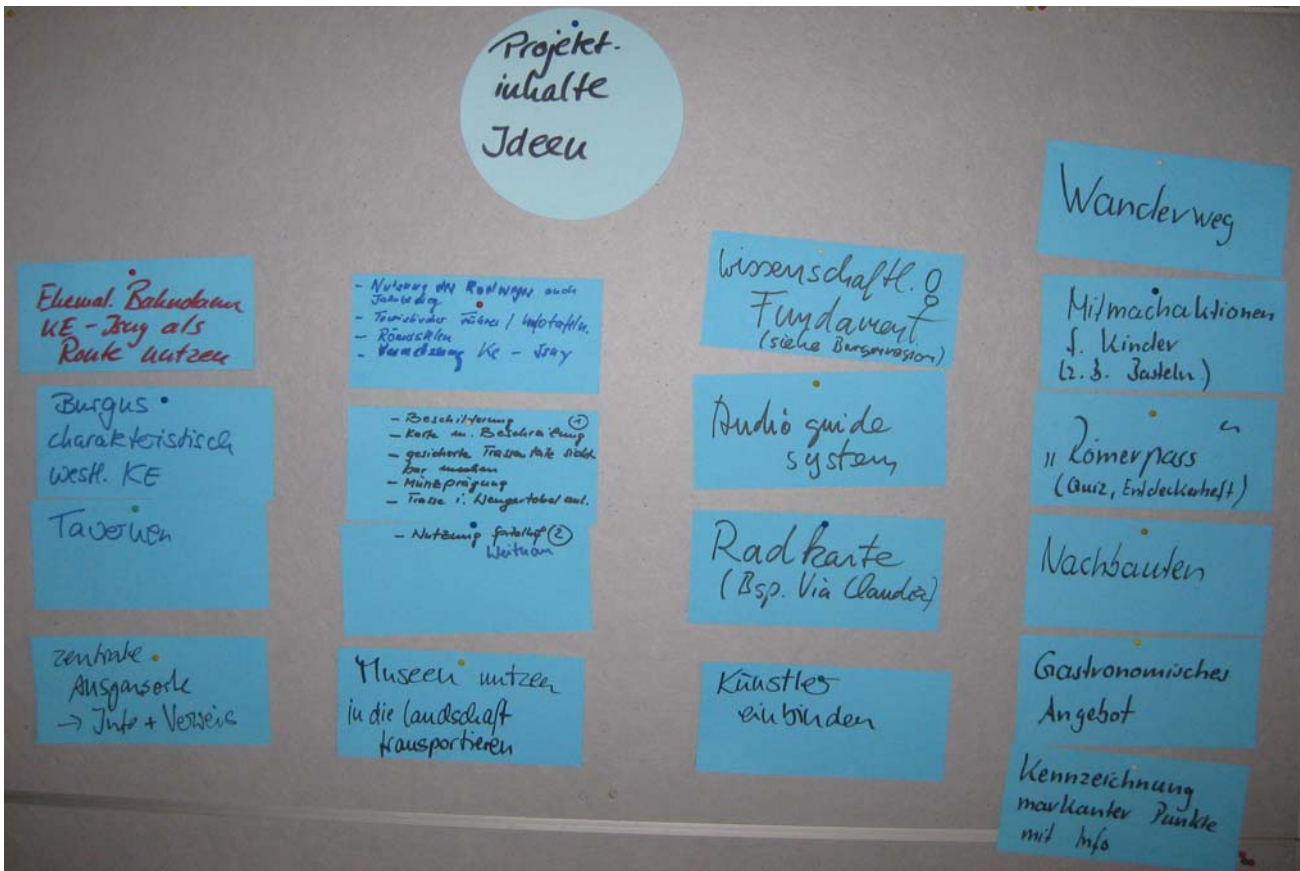 Projekt-
inhalte
Ideen
Ehemal. Bahndamm
KE - Isny als
Route nutzen
Burgus
charakteristisch
westl. KE
Tavernen
zentrale
Ausgansorte
→ Info + Verweis
- Nutzung des Radweges auch
- Touristischer Führer / Infotafeln.
- Römerstelen
- Vermessung Ke - Isny
- Beschilderung ①
- Karte m. Beschreibung
- gesicherte Trassen Kate sicht
bar machen
- Münzprägung
- Trasse i. Wengertobel
- Nutzung ②
Museen nutzen
in die Landschaft
transportieren
wissenschaftl.
Fundament
(siehe Burgenregion)
Audio guide
system
Radkarte
(Bsp. Via Claudia)
Künstler
einbinden
Wanderweg
Mitmachaktionen
f. Kinder
(z. B. Basteln)
„Römerpass“
(Quiz, Entdeckerheft)
Nachbauten
Gastronomisches
Angebot
Kennzeichnung
markanter Punkte
mit Info